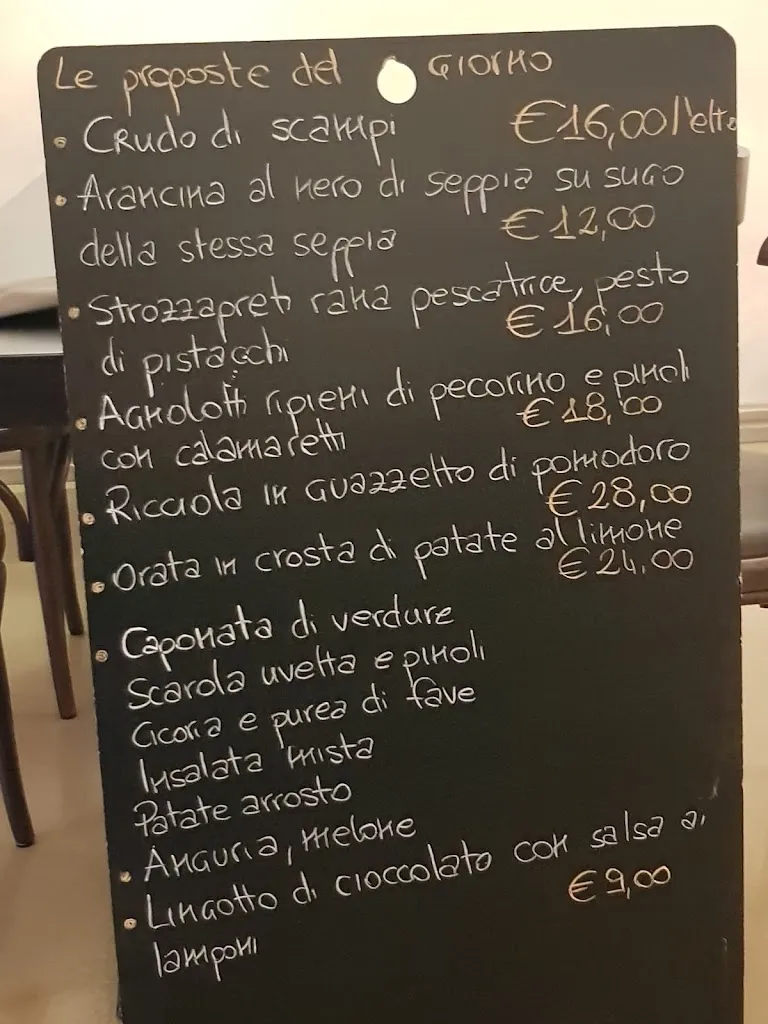 Le proposte del GIORNO
• Crudo di scampi €16,00/l'etto
• Arancina al nero di seppia su sugo
della stessa seppia €12,00
• Strozzapreti rana pescatrice, pesto
di pistacchi €16,00
• Agnolotti ripieni di pecorino e pinoli
con calamaretti €18,00
• Ricciola in guazzetto di pomodoro
€28,00
• Orata in crosta di patate al limone
€24,00
• Caponata di verdure
Scarola uvetta e pinoli
Cicoria e purea di fave
Insalata mista
Patate arrosto
• Anguria, melone
• Lingotto di cioccolato con salsa ai
lamponi €9,00